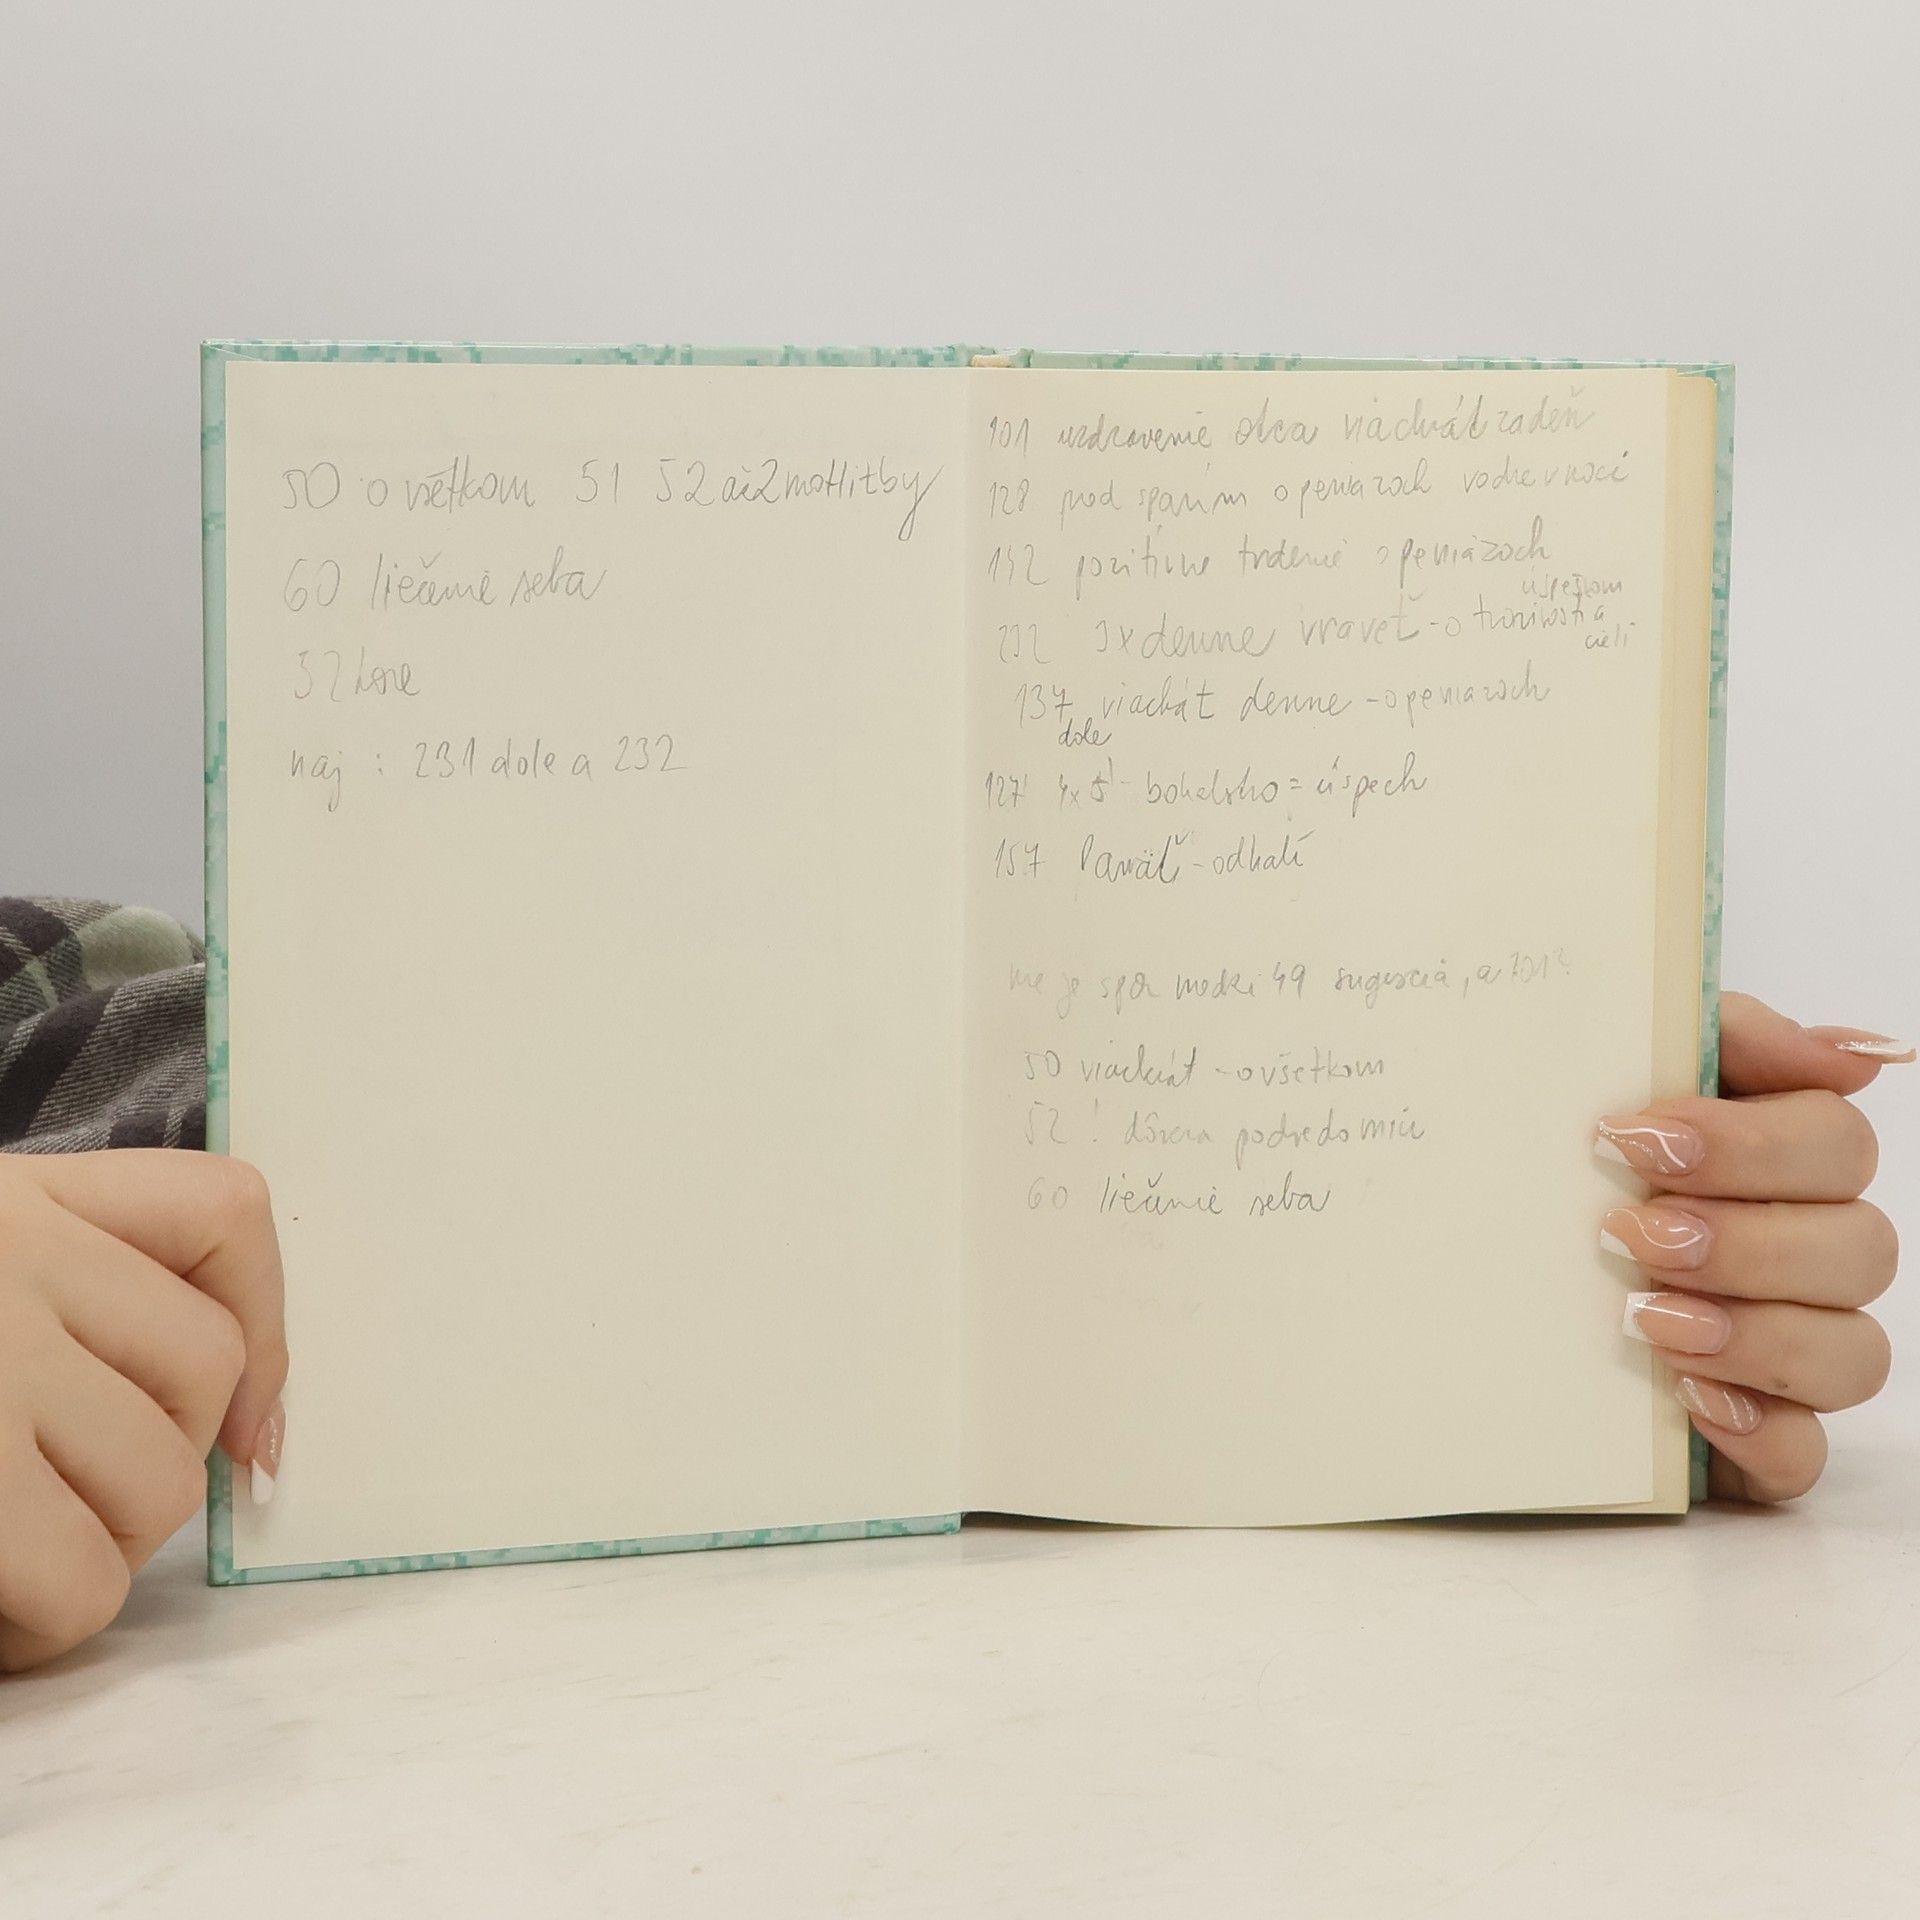 50 o všetkom 51 52 až 2 motlitby
60 liečenie seba
52 hore
naj : 231 dole a 232
101 uzdravenie otca viackrát za deň
128 pred spaním o peniazoch vo dne v noci
142 pozitívne tvrdenie o peniazoch
úspešnom
232 3x denne vraveť - o tvorivosti a
cieli
137 viackrát denne - o peniazoch
dole
127 4x 5' - bohatstvo = úspech
157 Pamäť - odhalí
49 sugescia, a 101?
50 viackrát - o všetkom
52 ! dôvera podvedomiu
60 liečenie seba